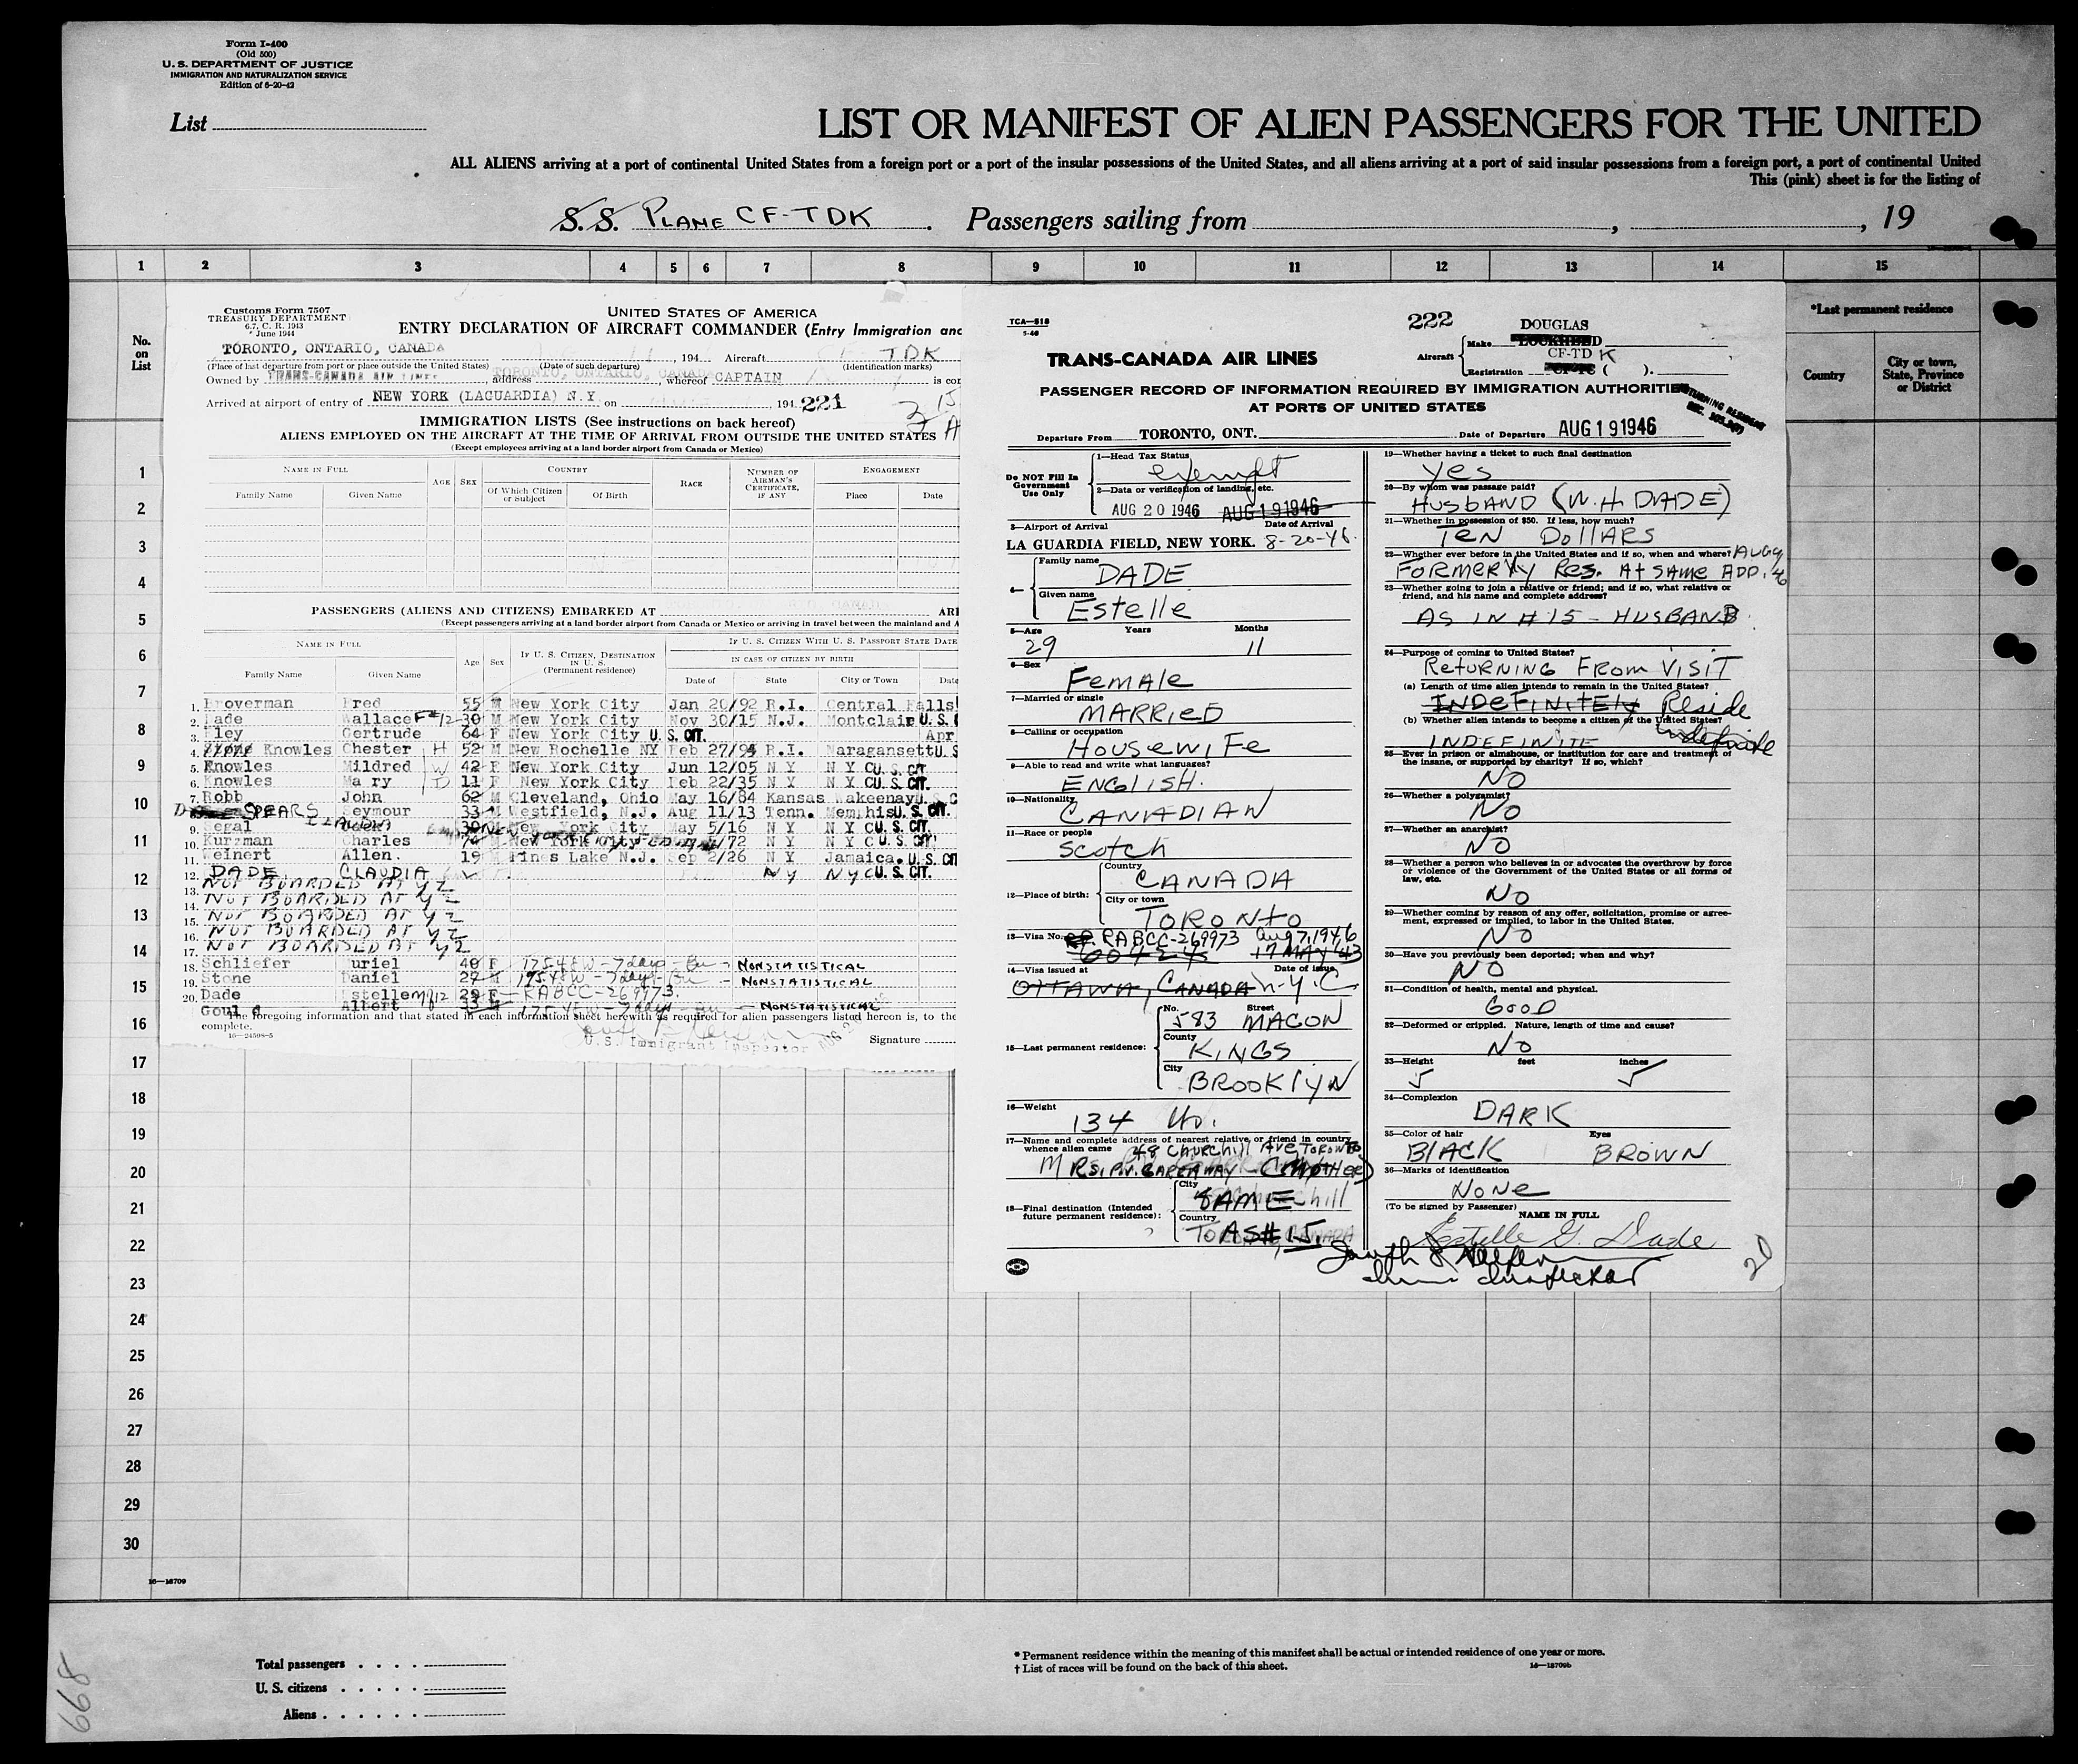 Form I-400
(Old 500)
U. S. DEPARTMENT OF JUSTICE
IMMIGRATION AND NATURALIZATION SERVICE
Edition of 6-20-42
List
LIST OR MANIFEST OF ALIEN PASSENGERS FOR THE UNITED
ALL ALIENS arriving at a port of continental United States from a foreign port or a port of the insular possessions of the United States, and all aliens arriving at a port of said insular possessions from a foreign port, a port of continental United
This (pink) sheet is for the listing of
S. S. PLANE CF-TDK . Passengers sailing from , , 19
1 2 3 4 5 6 7 8 9 10 11 12 13 14 15
No. on List
*Last permanent residence
Country
City or town, State, Province or District
Customs Form 7507
TREASURY DEPARTMENT
6.7, C. R. 1943
June 1944
UNITED STATES OF AMERICA
ENTRY DECLARATION OF AIRCRAFT COMMANDER (Entry Immigration and
TORONTO, ONTARIO, CANADA , 194 Aircraft TDK
(Place of last departure from port or place outside the United States) (Date of such departure) (Identification marks)
Owned by TRANS-CANADA AIR LINES , address TORONTO, ONTARIO, CANADA , whereof CAPTAIN is
Arrived at airport of entry of NEW YORK (LAGUARDIA) N.Y. on 194 221
IMMIGRATION LISTS (See instructions on back hereof)
ALIENS EMPLOYED ON THE AIRCRAFT AT THE TIME OF ARRIVAL FROM OUTSIDE THE UNITED STATES
(Except employees arriving at a land border airport from Canada or Mexico)
NAME IN FULL AGE SEX COUNTRY RACE NUMBER OF AIRMAN'S CERTIFICATE, IF ANY ENGAGEMENT
Family Name Given Name Of Which Citizen or Subject Of Birth Place Date
PASSENGERS (ALIENS AND CITIZENS) EMBARKED AT
(Except passengers arriving at a land border airport from Canada or Mexico or arriving in travel between the mainland and
NAME IN FULL Age Sex IF U. S. CITIZEN, DESTINATION IN U. S. (Permanent residence) IF U. S. CITIZEN WITH U. S. PASSPORT STATE DATE
IN CASE OF CITIZEN BY BIRTH
Family Name Given Name Date of State City or Town
1. Broverman Fred 55 M New York City Jan 20/92 R.I. Central Falls
2. Dade Wallace F#12 30 M New York City Nov 30/15 N.J. Montclair U.S.
3. Eley Gertrude 64 F New York City U.S. CIT. Apr
4. Knowles Chester H 52 M New Rochelle NY Feb 27/94 R.I. Naragansett U.S
5. Knowles Mildred W 42 F New York City Jun 12/05 N Y N Y C U.S. CIT
6. Knowles Mary D 11 F New York City Feb 22/35 N Y N Y C U.S. CIT.
7. Robb John 62 M Cleveland, Ohio May 16/84 Kansas Wakeenay U.S. C
SPEARS Seymour 33 M Westfield, N.J. Aug 11/13 Tenn. Memphis U.S. CIT.
9. Segal 30 M New York City May 5/16 N Y N Y C U.S. CIT.
10. Kurzman Charles 74 M New York City /72 N Y N Y C U.S. CIT.
11. Weinert Allen. 19 M Pines Lake N.J. Sep 2/26 N Y Jamaica. U.S. CIT
12. DADE CLAUDIA NY NYC U.S. CIT.
13. NOT BOARDED AT YZ
14. NOT BOARDED AT YZ
15. NOT BOARDED AT YZ
16. NOT BOARDED AT YZ
17. NOT BOARDED AT YZ
18. Schliefer Muriel 40 F 17548W - 7 days - NONSTATISTICAL
19. Stone Daniel 27 M 17548W - 7 days - NONSTATISTICAL
20. Dade Estelle 29 F - RABCC-269973.
Albert 33 7 days - NONSTATISTICAL
The foregoing information and that stated in each information sheet herewith as required for alien passengers listed hereon is, to the
complete.
16-24598-5
U.S. Immigrant Inspector
Signature
TCA-518
5-46
222
TRANS-CANADA AIR LINES
Aircraft Make DOUGLAS LOCKHEED
Registration CF-TD K CF-TC ( ).
PASSENGER RECORD OF INFORMATION REQUIRED BY IMMIGRATION AUTHORITIES
AT PORTS OF UNITED STATES
RETURNING RESIDENT
Departure From TORONTO, ONT. Date of Departure AUG 19 1946
Do NOT Fill In Government Use Only
1—Head Tax Status exempt
2—Data or verification of landing, etc.
AUG 20 1946 AUG 19 1946
3—Airport of Arrival Date of Arrival
LA GUARDIA FIELD, NEW YORK. 8-20-46.
4— Family name DADE
Given name Estelle
5—Age Years Months
29 11
6—Sex Female
7—Married or single MARRIED
8—Calling or occupation HOUSEWIFE
9—Able to read and write what languages? ENGLISH.
10—Nationality CANADIAN
11—Race or people Scotch
12—Place of birth: Country CANADA
City or town TORONTO
13—Visa No. RABCC-269973 Aug 7, 1946
17 MAY 43
14—Visa issued at Date of issue
OTTAWA, CANADA N.Y.C
15—Last permanent residence: No. Street 583 MACON
County KINGS
City BROOKLYN
16—Weight 134 lb.
17—Name and complete address of nearest relative or friend in country whence alien came
48 CHURCHILL AVE TORONTO
MRS. (MOTHER)
18—Final destination (Intended future permanent residence): City SAME
Country AS #15
19—Whether having a ticket to such final destination
Yes
20—By whom was passage paid?
HUSBAND (W. H. DADE)
21—Whether in possession of $50. If less, how much?
TEN DOLLARS
22—Whether ever before in the United States and if so, when and where?
FORMERLY RES. AT SAME ADD.
23—Whether going to join a relative or friend; and if so, what relative or friend, and his name and complete address?
AS IN #15 - HUSBAND
24—Purpose of coming to United States?
RETURNING FROM VISIT
(a) Length of time alien intends to remain in the United States?
INDEFINITELY Reside
(b) Whether alien intends to become a citizen of the United States?
INDEFINITE Indefinite
25—Ever in prison or almshouse, or institution for care and treatment of the insane, or supported by charity? If so, which?
NO
26—Whether a polygamist?
NO
27—Whether an anarchist?
NO
28—Whether a person who believes in or advocates the overthrow by force or violence of the Government of the United States or all forms of law, etc.
NO
29—Whether coming by reason of any offer, solicitation, promise or agreement, expressed or implied, to labor in the United States.
NO
30—Have you previously been deported; when and why?
NO
31—Condition of health, mental and physical.
GOOD
32—Deformed or crippled. Nature, length of time and cause?
NO
33—Height feet inches
5 5
34—Complexion
DARK
35—Color of hair Eyes
BLACK BROWN
36—Marks of identification
NONE
(To be signed by Passenger) NAME IN FULL
Estelle G. Dade
20
1
2
3
4
5
6
7
8
9
10
11
12
13
14
15
16
17
18
19
20
21
22
23
24
25
26
27
28
29
30
16—18709
Total passengers
U. S. citizens
Aliens
* Permanent residence within the meaning of this manifest shall be actual or intended residence of one year or more.
† List of races will be found on the back of this sheet. 16—18709b
668